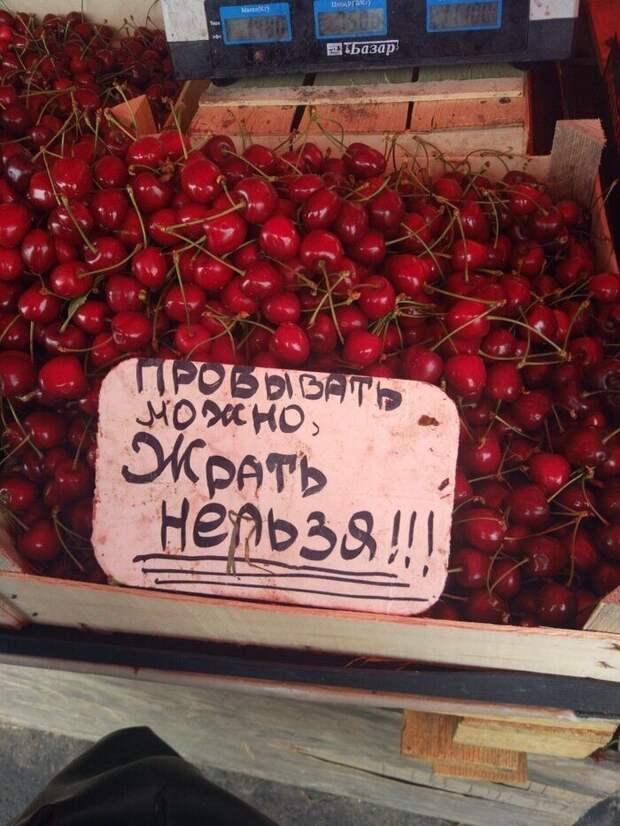 Базар
ПРОБЫВАТЬ
МОЖНО,
ЖРАТЬ
НЕЛЬЗЯ!!!